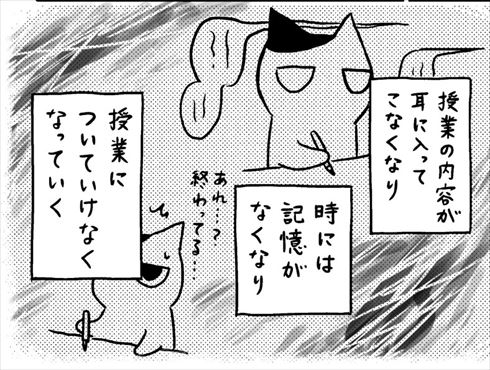 授業の内容が
耳に入って
こなくなり
時には
記憶が
なくなり
あれ…?
終わってる…
授業に
ついていけなく
なっていく